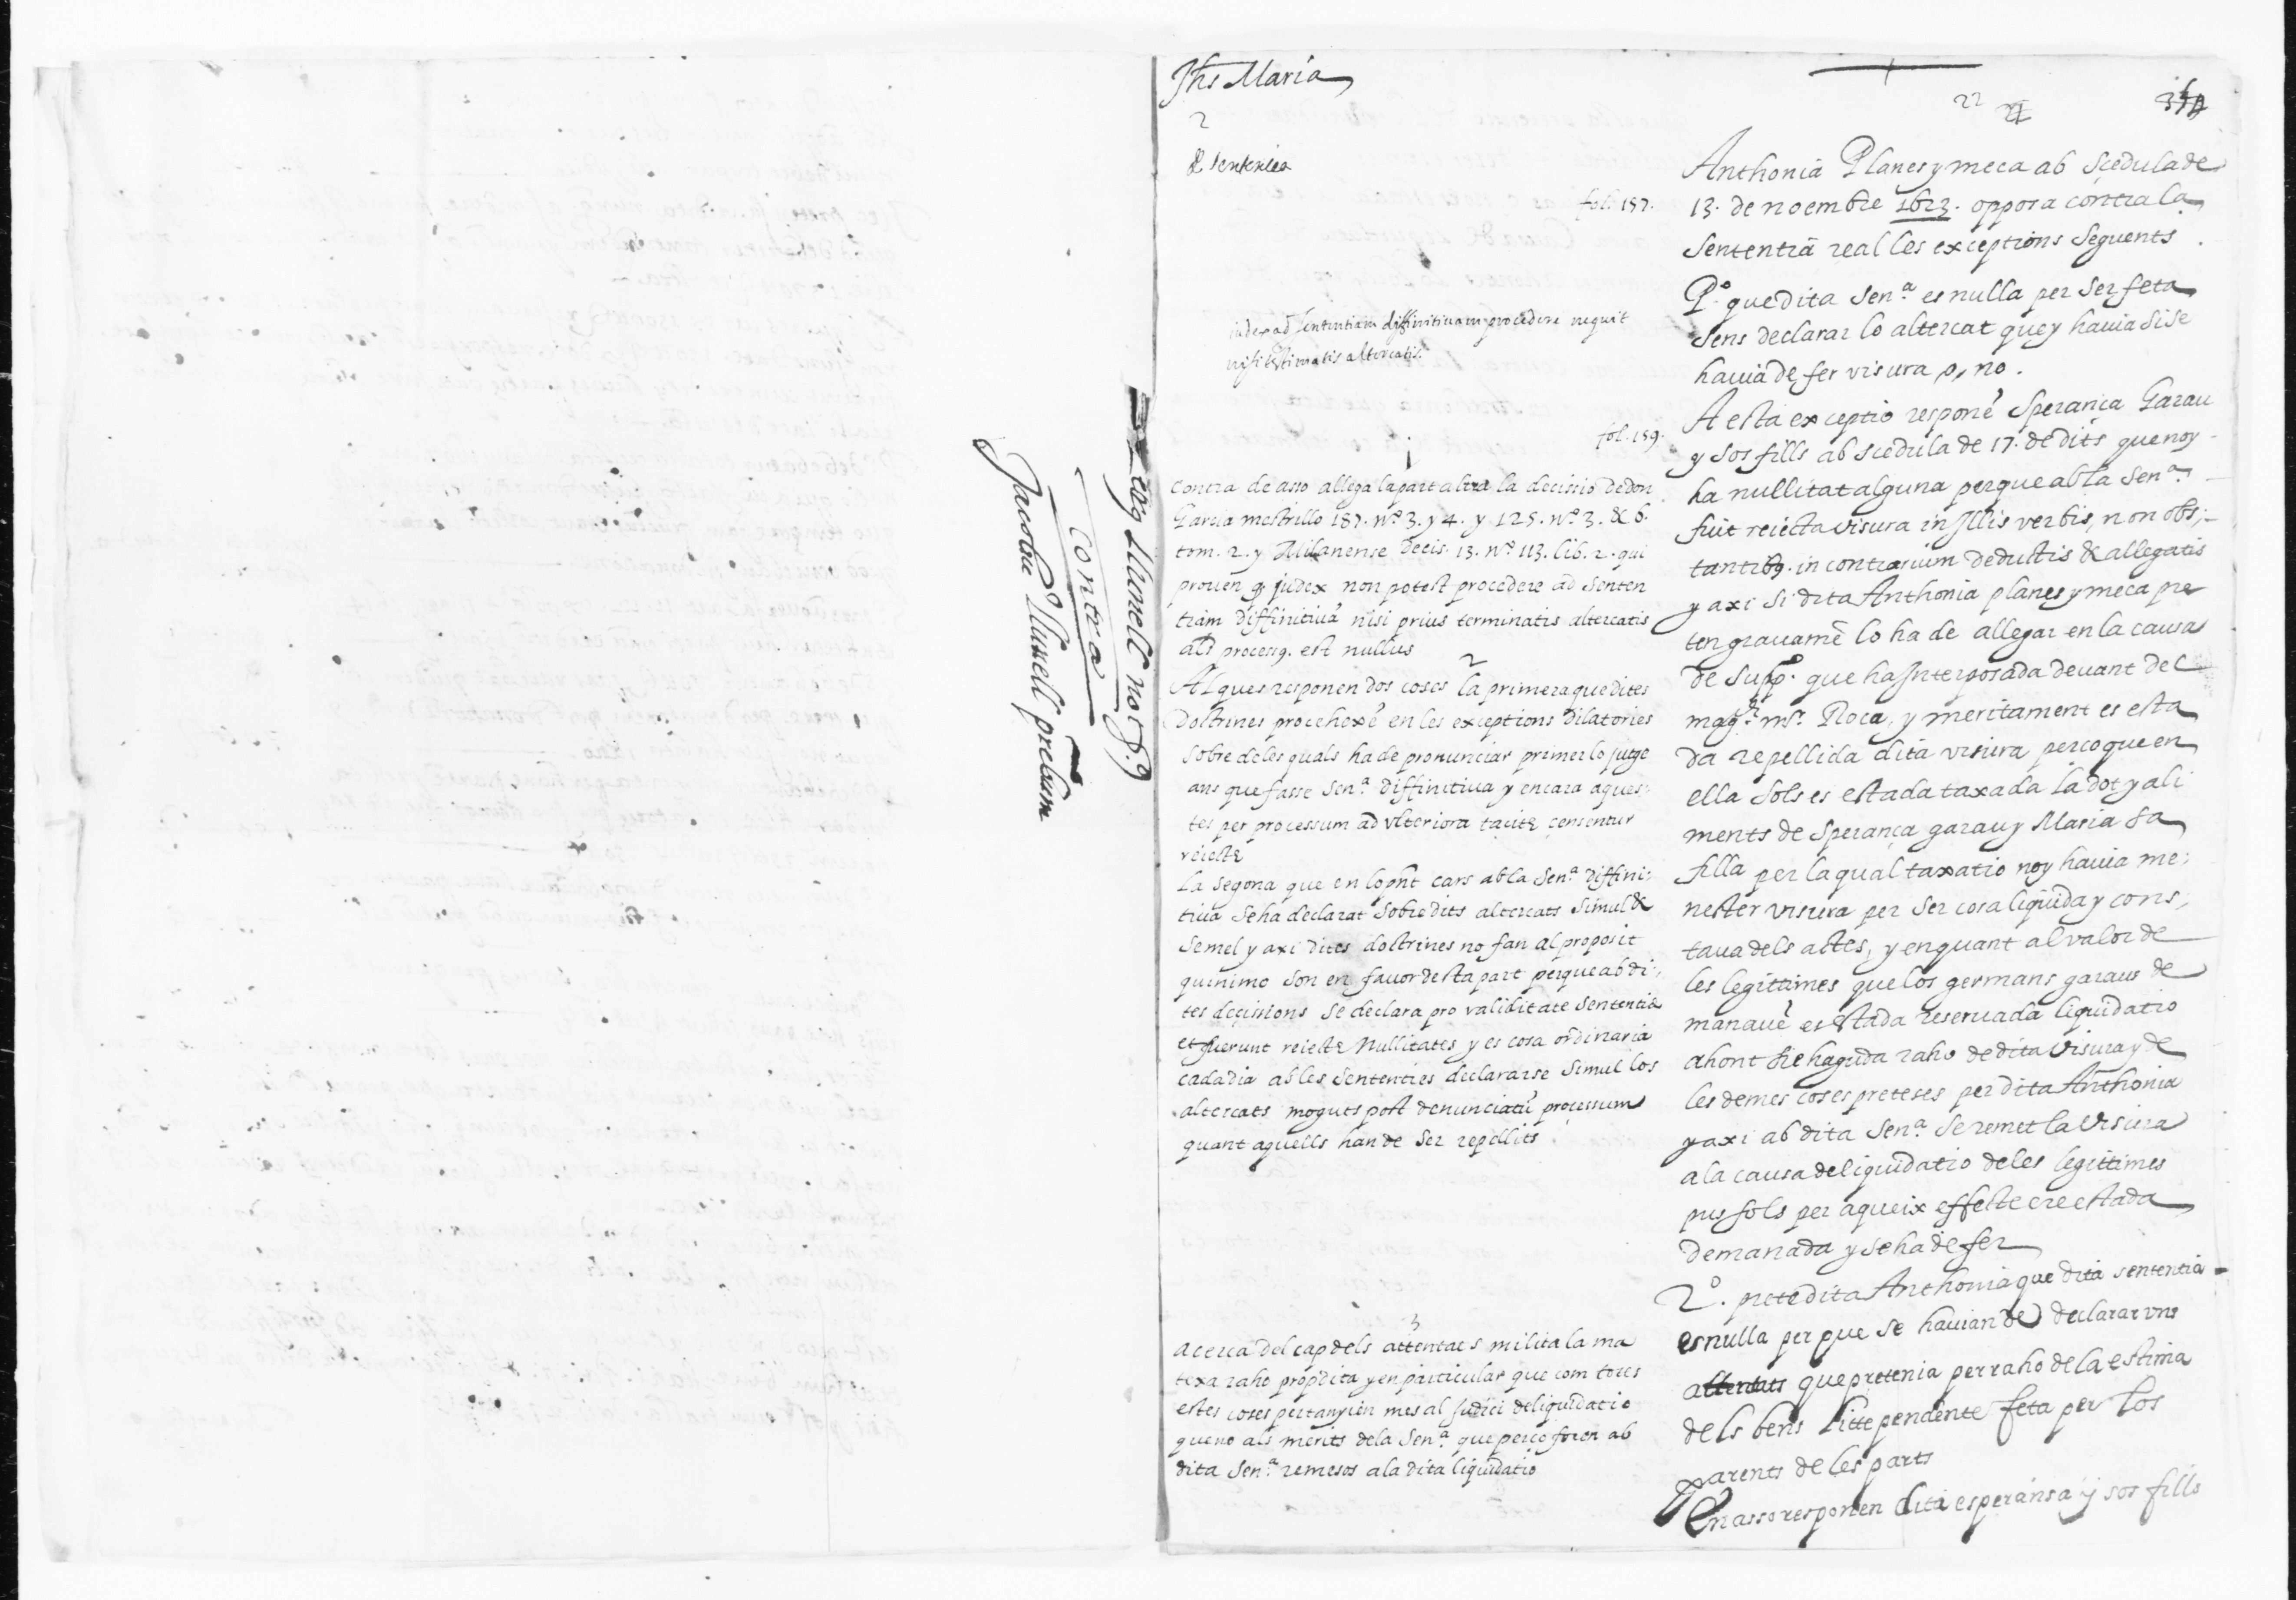 Llunell not.
contra
Jacobu Llunell prebrum
Jhs Maria
2
& sententiea
22
fol. 157.
iudex ad sententiam diffinitivam procedere nequit
nisi terminatis altercatis
fol. 159.
1
Contra de asso allega la part altra la decissio de don
Garcia mastrillo 187. nº 3. y 4. y 125. nº 3. & 6.
tom. 2. y Milanense decis. 13. nº 113. lib. 2. qui
proven q judex non potest procedere ad senten
tiam diffinitivā nisi prius terminatis altercatis
als process9. est nullus
2
Al ques responen dos coses la primera que dites
Doctrines procehexē en les exceptions dilatories
sobre de les quals ha de pronunciar primer lo jutge
ans que fasse Senª. diffinitiva y encara aques:
tes per processum ad ulteriora tacite censentur
reiecte
La segona que en lo pnt cars ab la Senª. diffini:
tiva se ha declarat sobre dits altercats simul &
semel y axi dites doctrines no fan al proposit
quinimo son en favor desta part perque ab di:
tes decissions se declara pro validitate sententie
et fuerunt reiecte Nullitates y es cosa ordinaria
cada dia ab les sententies declararse simul los
altercats moguts post denunciatū processum
quant aquells han de ser repellits
3
Acerca del cap dels attentats milita la ma
texa raho prop dita y en particular que com totes
estes coses pertanyien mes al judici de liquidatio
que no als merits de la Senª. que perço foren ab
dita Senª. remesos a la dita liquidatio
Anthonia Planes y meca ab scedula de
13. de noembre 1623. opposa contra la
sententia real les exceptions seguents
Pº. que dita Senª. es nulla per ser feta
sens declarar lo altercat que y havia si se
havia de fer visura o, no.
A esta exceptio responē Sperança Garau
y sos fills ab scedula de 17. de dits que noy
ha nullitat alguna perque ab la Senª.
fuit reiecta visura in Illis verbis, non obs;
tantib9. in contrarium deductis & allegatis
y axi si dita Anthonia planes y meca pre
ten gravamē lo ha de allegar en la causa
de suppº. que ha Interposada devant del
magch. mr. Roca, y meritament es esta
da repellida dita visura perço que en
ella sols es estada taxada la dot y ali
ments de Sperança garau y Maria sa
filla per la qual taxatio noy havia me;
nester visura per ser cosa liquida y cons;
tava dels actes, y en quant al valor de
les legittimes que los germans garaus de
manavē es estada reservada liquidatio
ahont sie haguda raho de dita visura y de
les demes coses preteses per dita Anthonia
y axi ab dita Senª. se remet la visura
a la causa de liquidatio de les legittimes
pus sols per aqueix effecte ere estada
demanada y se ha de fer
2º. pretē dita Anthonia que dita sententia
es nulla per que se havian de declarar uns
attentats que pretenia per raho de la estima
dels bens litte pendente feta per los
parents de les parts
En asso responen dita esperansa y sos fills